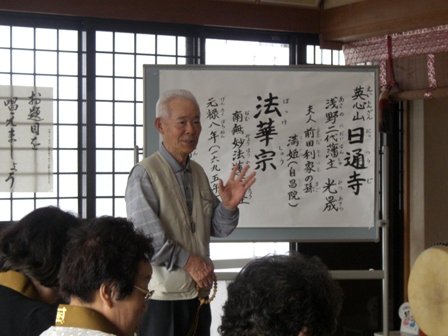 英心山 日通寺
浅野二代藩主 光晟
夫人 前田利家の孫
満姫（自昌院）
法華宗
南無妙法
元禄八年（一六九五年
お題目を
唱えましょう